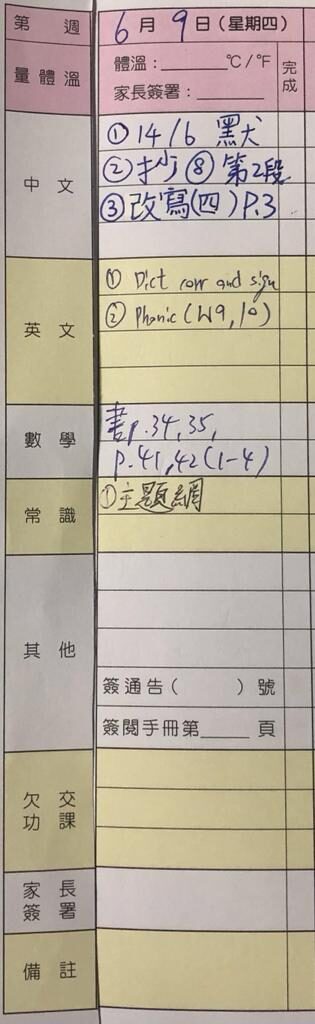 第 週 6月9日(星期四)
量體溫 體溫:______°C/°F 完成
家長簽署:______
中文 ① 14/6 黑犬
② 抄⑧第2段
③ 改寫(四)P.3
英文 ① Dict corr and sign
② Phonic (W9,10)
數學 書p.34,35,
p.41,42(1-4)
常識 ①主題網
其他
簽通告( )號
簽閱手冊第____頁
欠交功課
家長簽署
備註